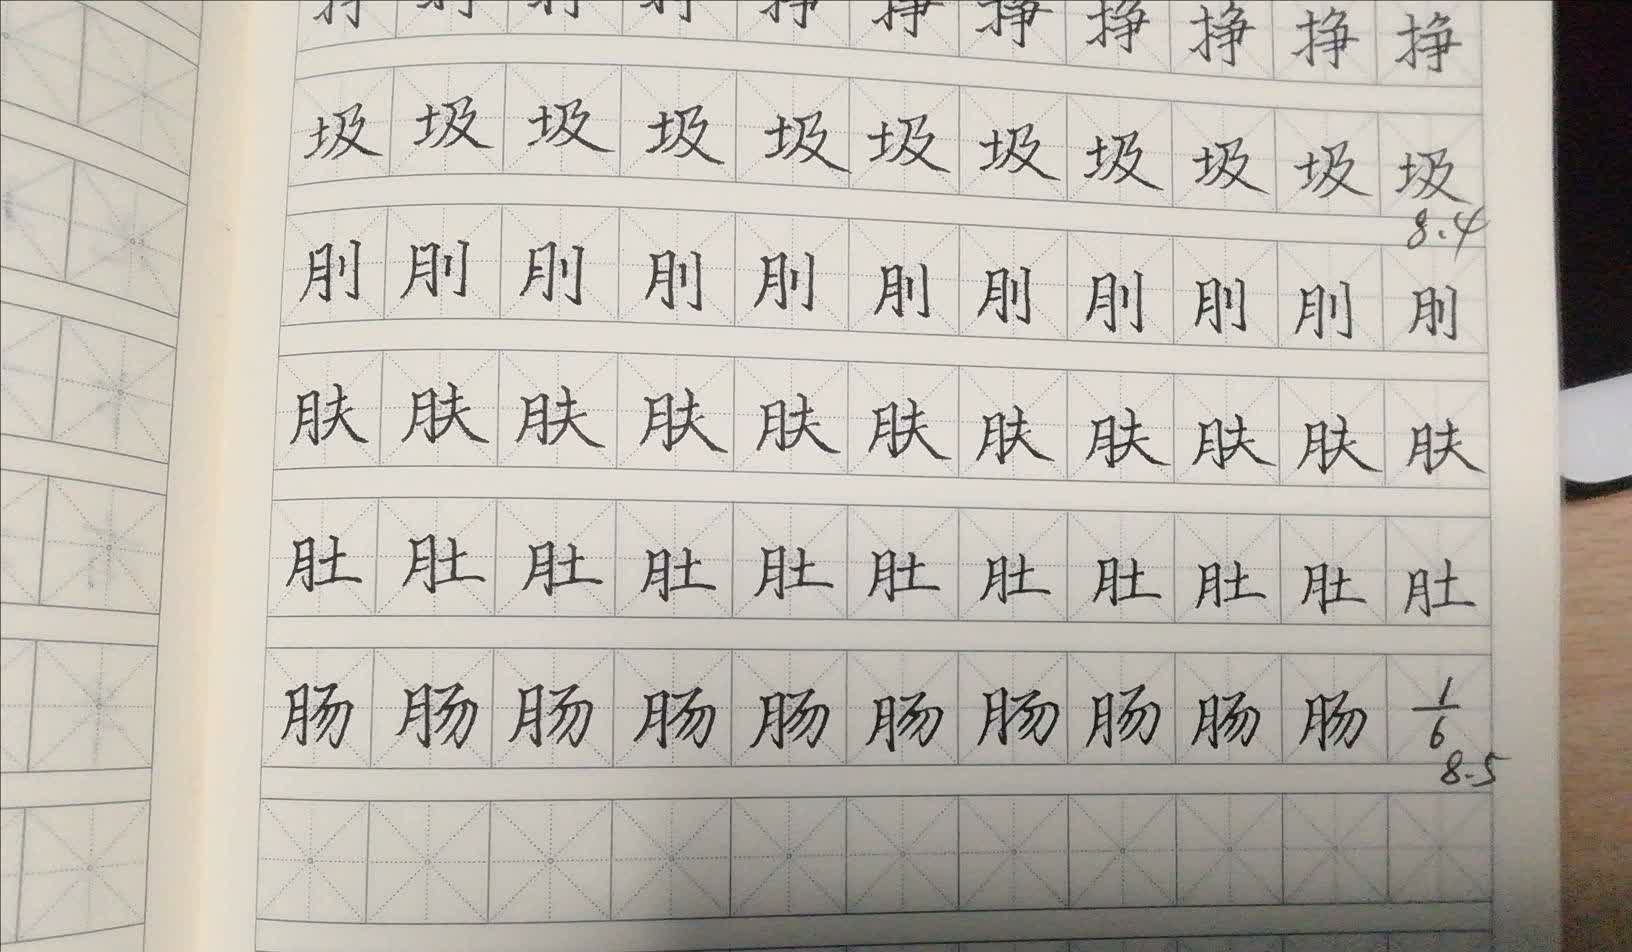 挣挣挣挣挣挣挣
圾圾圾圾圾圾圾圾圾圾圾
8.4
刖刖刖刖刖刖刖刖刖刖刖
肤肤肤肤肤肤肤肤肤肤肤
肚肚肚肚肚肚肚肚肚肚肚
肠肠肠肠肠肠肠肠肠肠 1/6
8.5